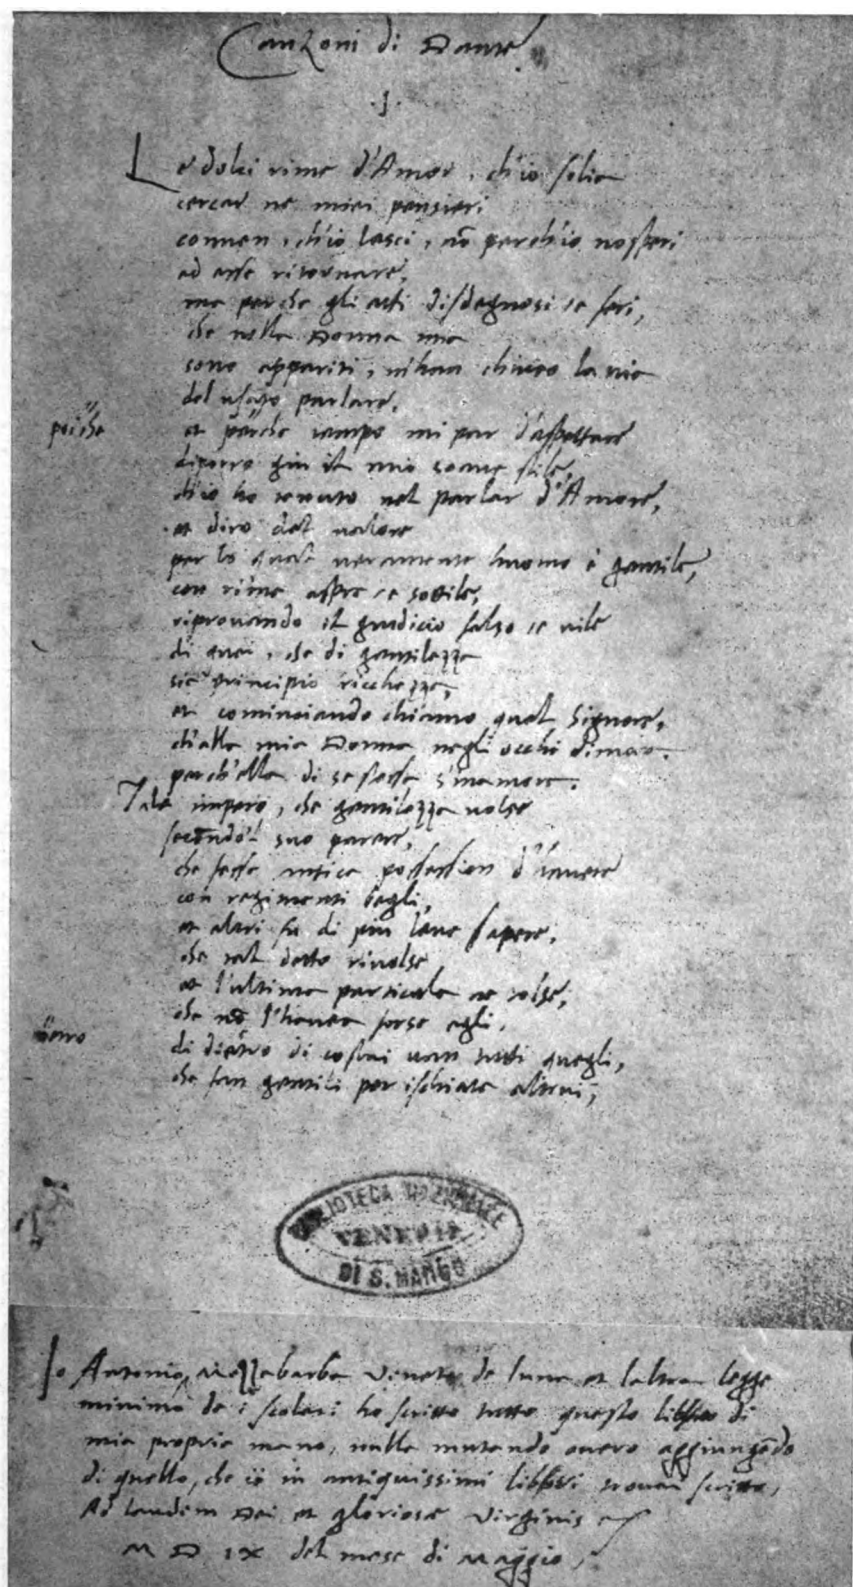 Canzoni di Dante
.j.
Le dolci rime d'Amor, ch'io solia
cercar ne miei pensieri
conuen, ch'io lasci, nō perch'io nō speri
ad esse ritornare,
ma perche gli atti disdegnosi e feri,
che nella Donna mia
sono appariti, m'han chiuso la via
del usato parlare.
poi che
et perche tempo mi par d'aspettare
diporro giu il mio soaue stile,
ch'io ho tenuto nel parlar d'Amore,
et diro del valore
per lo qual veramente huomo è gentile,
con rime aspre e sottile,
riprouando il giudicio falso e vile
di quei, che di gentilezza
sia principio ricchezza,
et cominciando chiamo quel Signore,
ch'alla mia Donna negli occhi dimora.
perch'ella di se stessa s'inamora.
Tale impero, che gentilezza volse
secondo'l suo parere,
che fosse antica possession d'hauere
con regimenti begli,
et altri fu di piu leue sapere,
che tal detto riuolse
et l'ultima particula ne tolse,
che nō l'hauea forse egli.
di dietro di costui uan tutti quegli,
che fan gentili per ischiata altrui,
BIBLIOTECA NAZIONALE
VENEZIA
DI S. MARCO
Io Antonio Mezzabarba Veneto de luna et laltra legge
minimo de i scolari ho scritto tutto questo libro di
mia propria mano, nulla mutando ouero aggiungēdo
di quello, che io in antiquissimi libri trouai scritto,
Ad laudem Dei et gloriosæ Virginis
M D IX del mese di Maggio